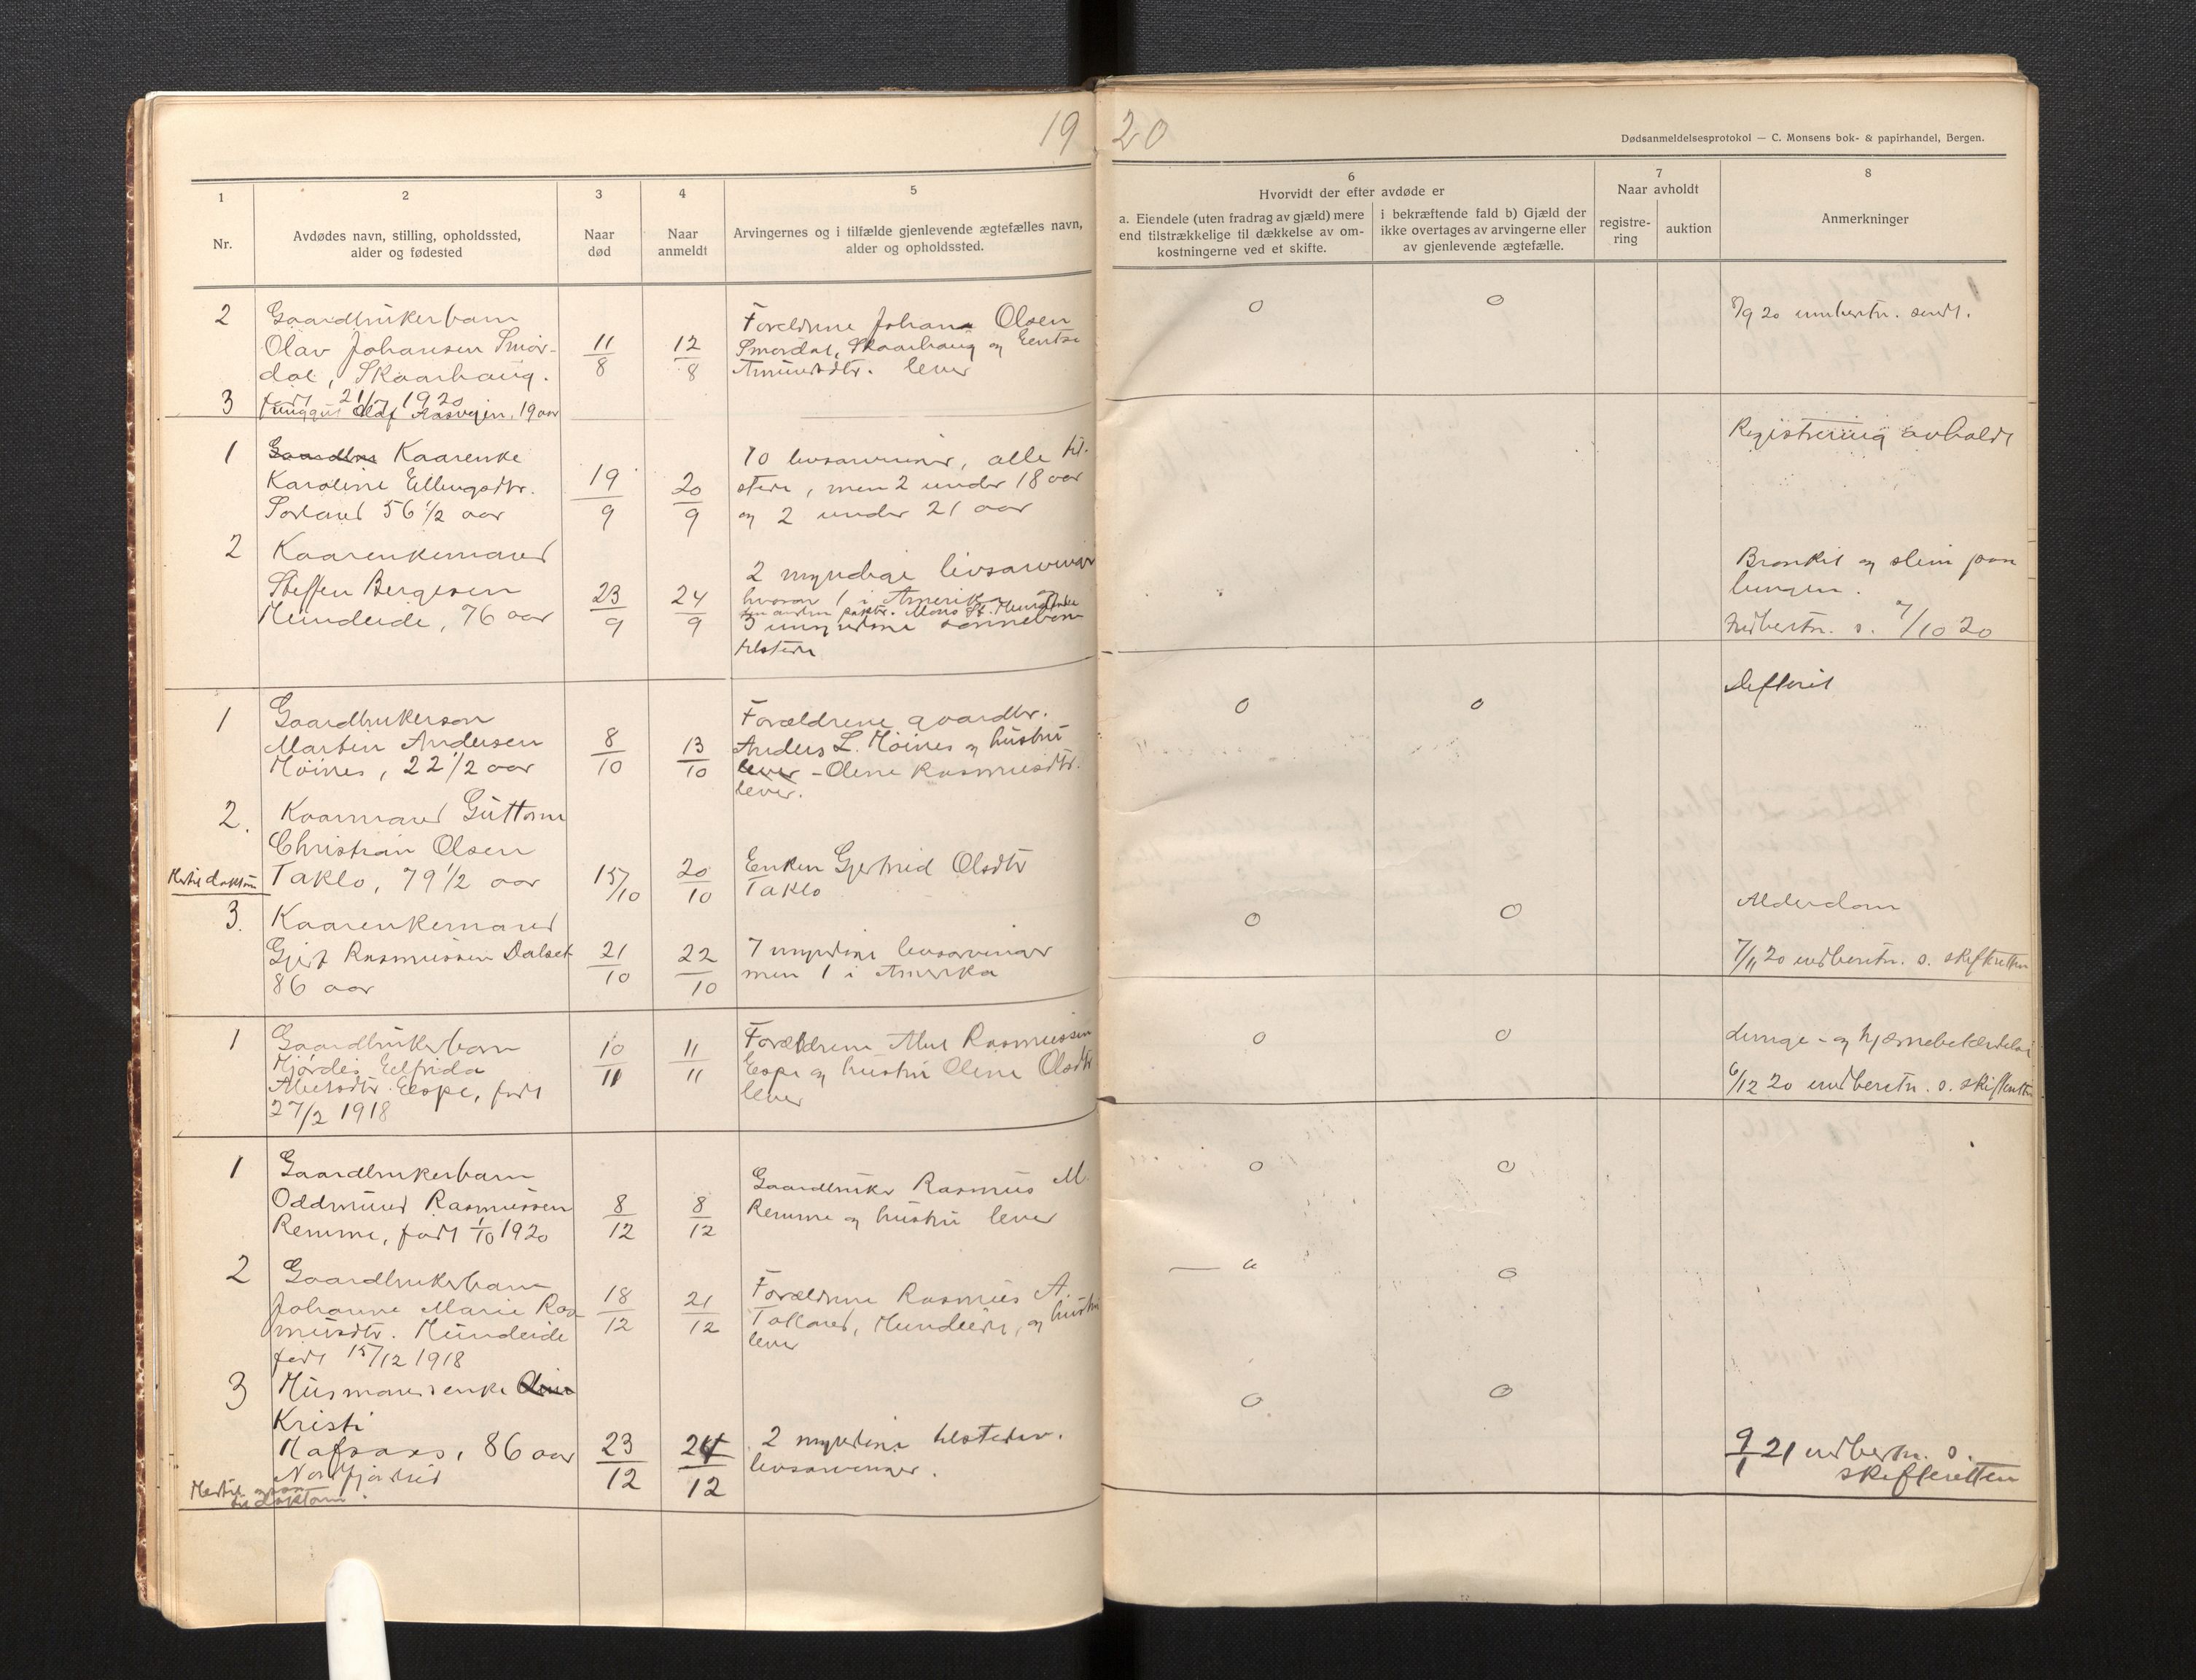 19 20
Dødsanmeldelsesprotokol — C. Monsens bok- & papirhandel, Bergen.
1
Nr.
2
Avdødes navn, stilling, opholdssted,
alder og fødested
3
Naar
død
4
Naar
anmeldt
5
Arvingernes og i tilfælde gjenlevende ægtefælles navn,
alder og opholdssted.
6
Hvorvidt der efter avdøde er
a. Eiendele (uten fradrag av gjæld) mere
end tilstrækkelige til dækkelse av om-
kostningerne ved et skifte.
i bekræftende fald b) Gjæld der
ikke overtages av arvingerne eller
av gjenlevende ægtefælle.
7
Naar avholdt
registre-
ring
auktion
8
Anmerkninger
2
Gaardbrukerbarn
Olav Johansen Smør-
dal, Skaarhaug.
født 21/7 1920
11/8
12/8
Foreldrene Johan Olsen
Smørdal, Skaarhaug og
lever
0
0
/9 20 indberetn. sendt.
3
Olaf Aasvejen, 19 aar
1
Gaardbr Kaarenke
Karoline Ellingsdtr.
Sørland 56 1/2 aar
19/9
20/9
10 livsarvinger, alle til-
stede, men 2 under 18 aar
og 2 under 21 aar
Registrering avholdt
2
Kaarenkemand
Steffen Bergesen
Hundeide, 76 aar
23/9
24/9
2 myndige livsarvinger
hvorav 1 i Amerika
3 umyndige sønnebørn
tilstede
Bronkit og slim paa
lungen.
Indberetn. s. 7/10 20
1
Gaardbrukersøn
Martin Andersen
Höines, 22 1/2 aar
8/10
13/10
Forældrene gaardbr.
Anders L. Höines og hustru
lever - Oline Rasmusdtr.
lever.
0
0
Difterit
2.
Kaarmand Guttorm
Christian Olsen
Taklo, 79 1/2 aar
15/10
20/10
Enken Gjertrud Olsdtr
Taklo
Hertil doktorn
3.
Kaarenkemand
Gjert Rasmussen Dalset
86 aar
21/10
22/10
7 myndige livsarvinger
men 1 i Amerika
0
0
Alderdom
7/11 20 indberetn. s. skifteretten
1
Gaardbrukerbarn
Hjørdis Elfrida
Abelsdtr. Eope, født
27/2 1918
10/11
11/11
Forældrene Abel Rasmussen
Eope og hustru Oline Olsdtr
lever
0
0
Lunge- og hjernebetændelse
6/12 20 indberetn. s. skifteretten
1
Gaardbrukerbarn
Oddmund Rasmussen
Remme, født 1/10 1920
8/12
8/12
Gaardbruker Rasmus M.
Remme og hustru lever
0
0
2
Gaardbrukerbarn
Johanne Marie Ras-
musdtr. Hundeide
født 15/12 1918
18/12
21/12
Forældrene Rasmus A.
Totland, Hundeide, og hustru
lever
0
0
3
Husmandsenke Oline
Kristi
Hafsaas, 86 aar
Nordfjordeid
23/12
24/12
2 myndige tilstedev.
livsarvinger.
0
0
9/1 21 indberetn. s.
skifteretten
Hertil
til doktorn.